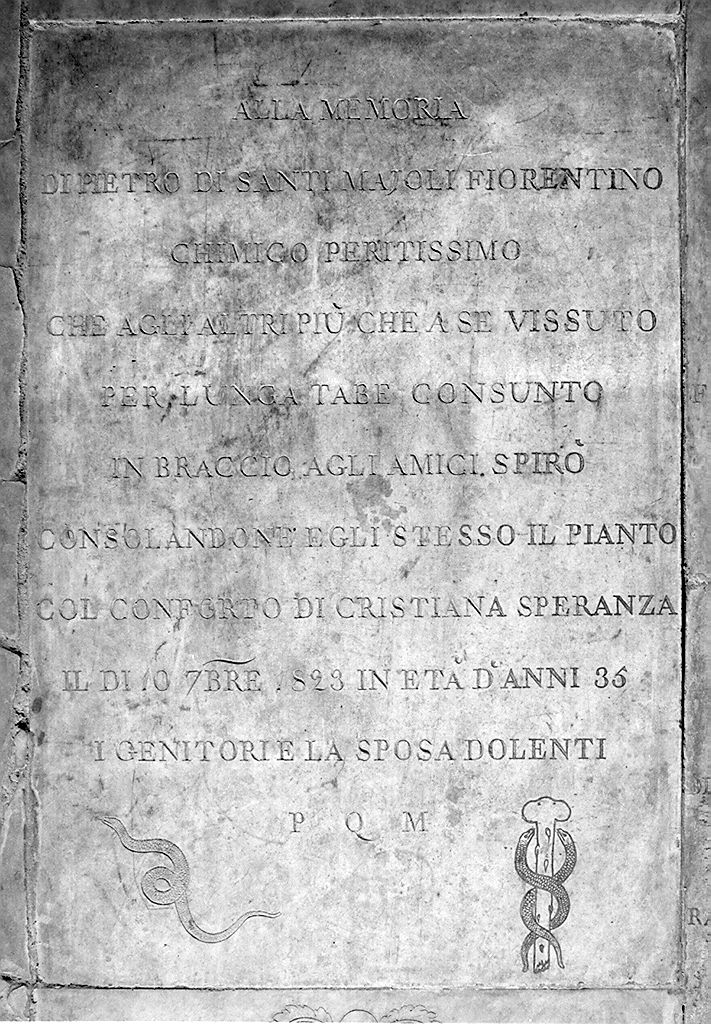 ALLA MEMORIA
DI PIETRO DI SANTI MAJOLI FIORENTINO
CHIMICO PERITISSIMO
CHE AGLI ALTRI PIÙ CHE A SE VISSUTO
PER LUNGA TABE CONSUNTO
IN BRACCIO AGLI AMICI SPIRÒ
CONSOLANDONE EGLI STESSO IL PIANTO
COL CONFORTO DI CRISTIANA SPERANZA
IL DI 10 7BRE 1823 IN ETÀ D'ANNI 36
I GENITORI E LA SPOSA DOLENTI
P Q M